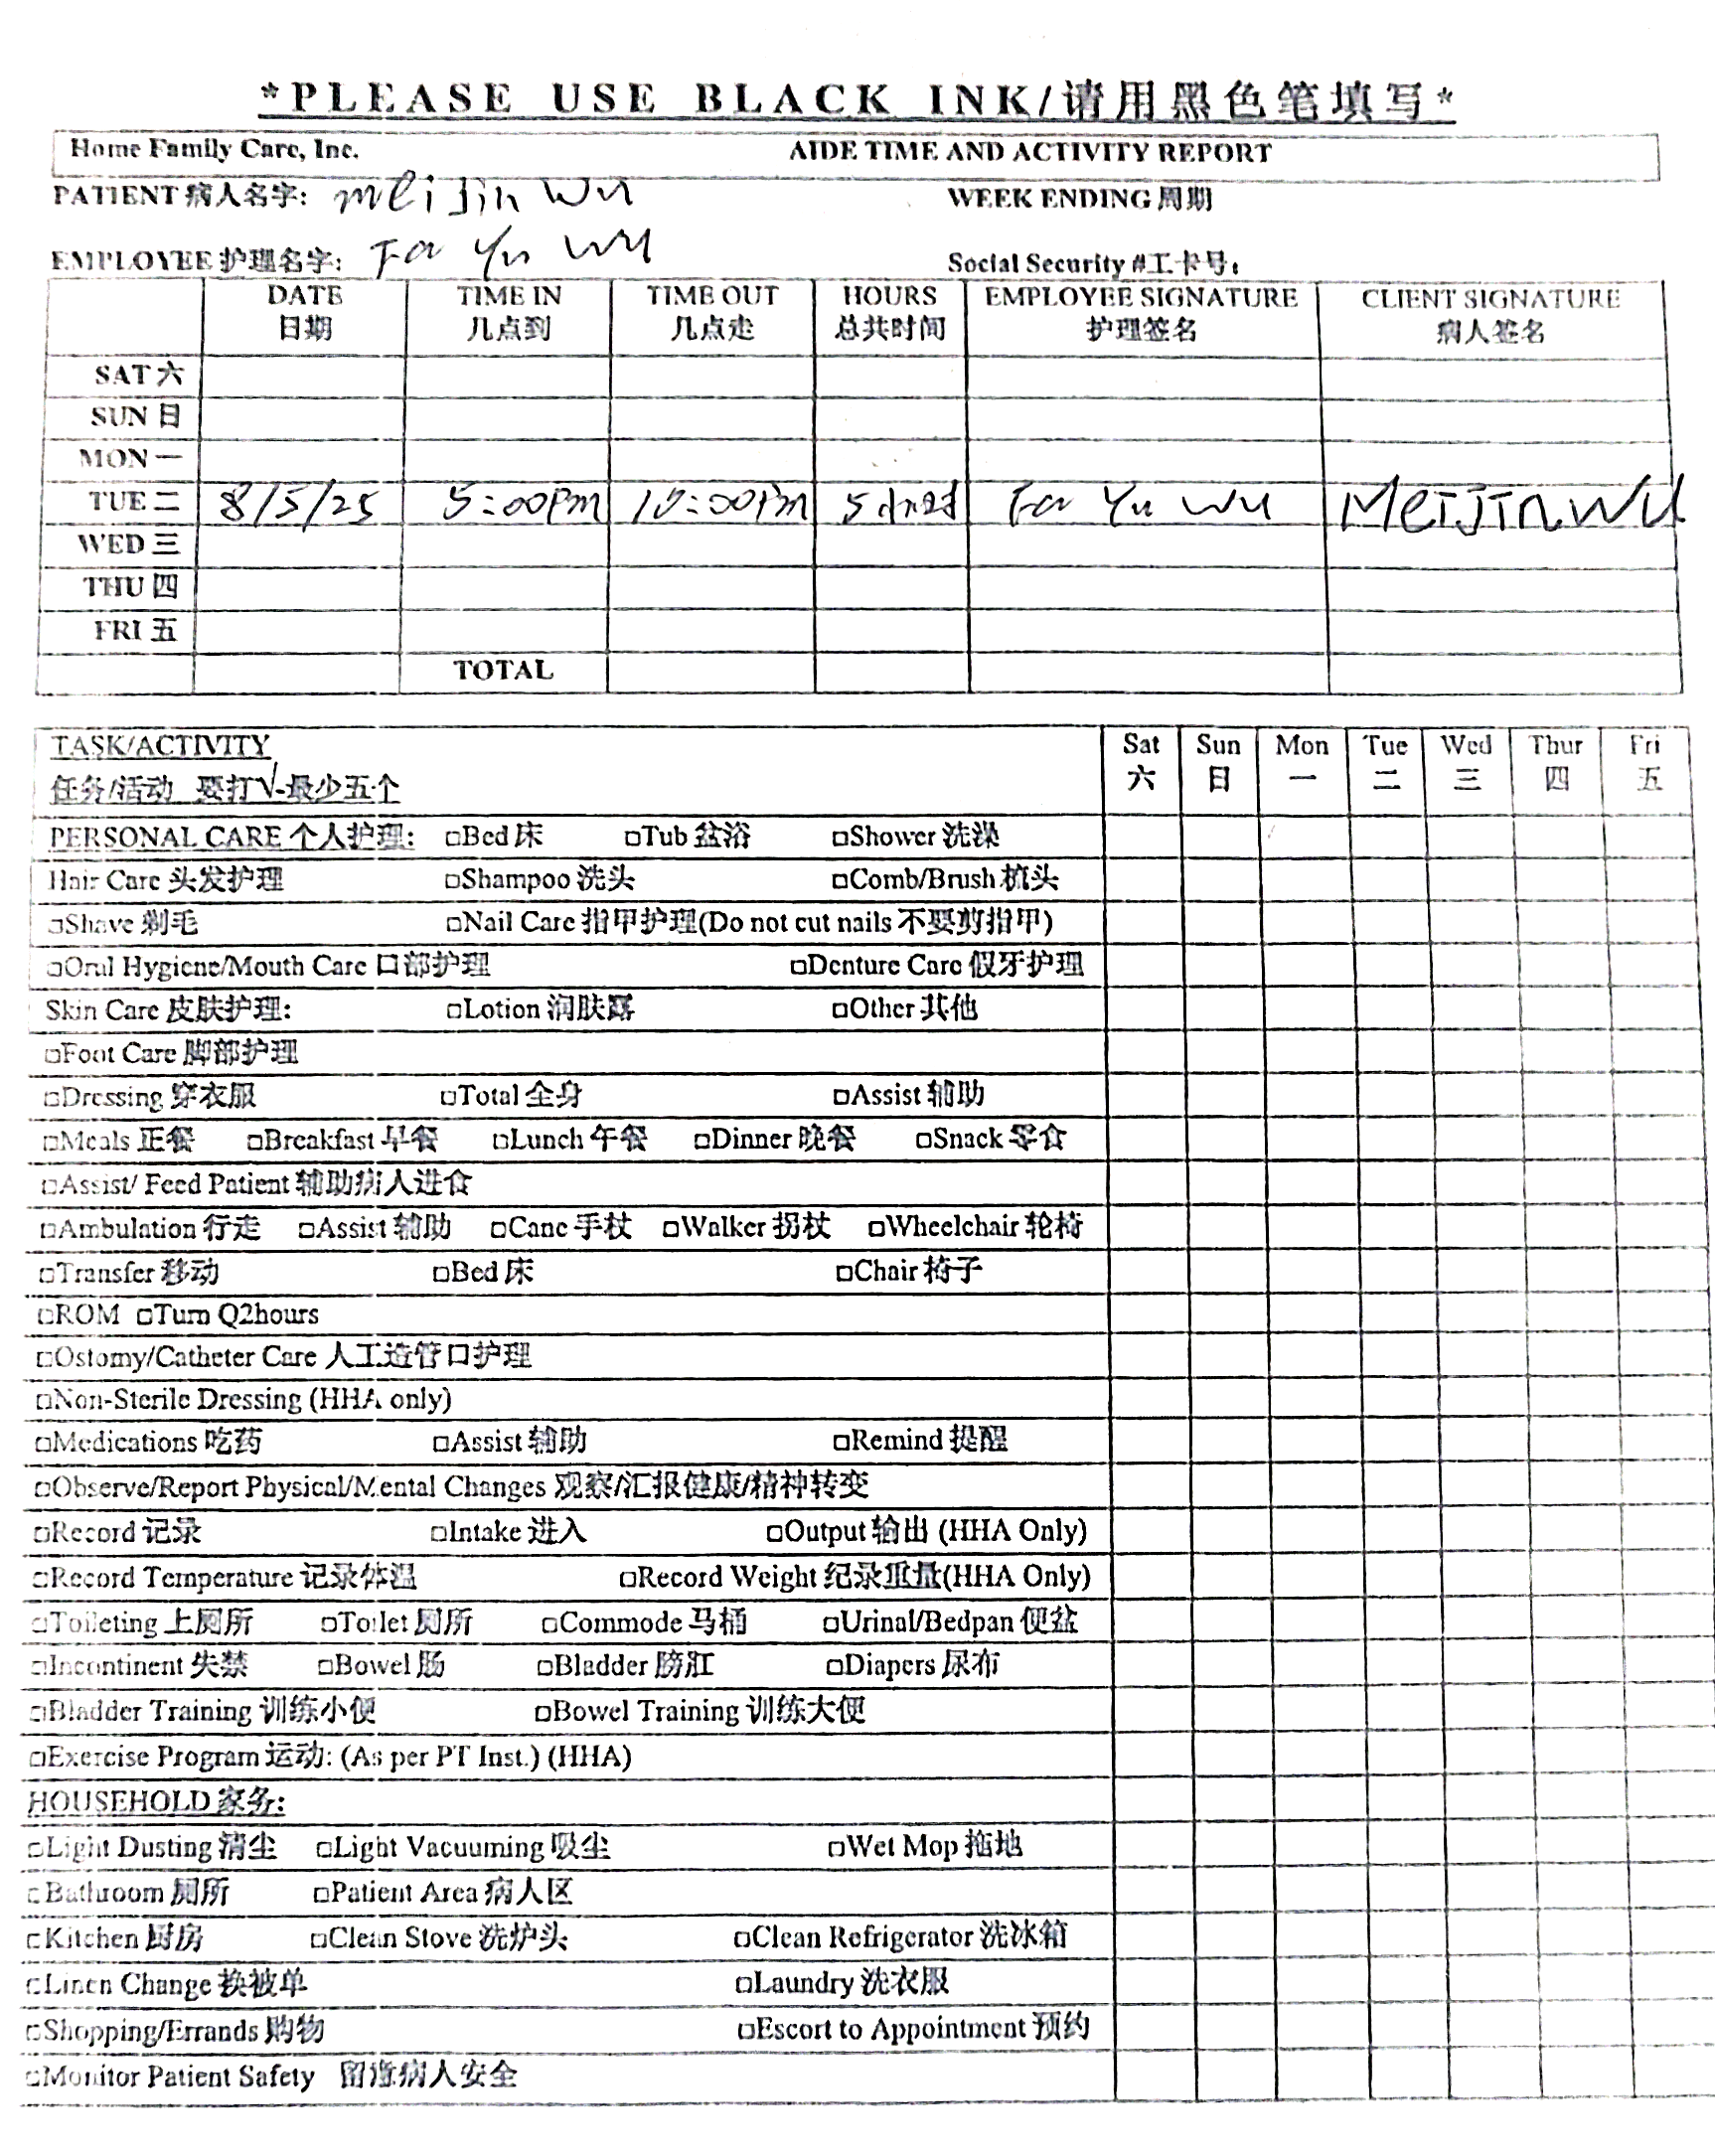 *PLEASE USE BLACK INK/请用黑色笔填写*
Home Family Care, Inc. AIDE TIME AND ACTIVITY REPORT
PATIENT 病人名字: meiJin wu WEEK ENDING 周期
EMPLOYEE 护理名字: Fa Yu wu Social Security #工卡号:
DATE TIME IN TIME OUT HOURS EMPLOYEE SIGNATURE CLIENT SIGNATURE
日期 几点到 几点走 总共时间 护理签名 病人签名
SAT 六
SUN 日
MON 一
TUE 二 8/5/25 5:00Pm 10:00Pm 5小时 Fa Yu wu MeiJin Wu
WED 三
THU 四
FRI 五
TOTAL
TASK/ACTIVITY Sat Sun Mon Tue Wed Thur Fri
任务/活动 要打√-最少五个 六 日 一 二 三 四 五
PERSONAL CARE 个人护理: □Bed 床 □Tub 盆浴 □Shower 洗澡
Hair Care 头发护理 □Shampoo 洗头 □Comb/Brush 梳头
□Shave 剃毛 □Nail Care 指甲护理(Do not cut nails 不要剪指甲)
□Oral Hygiene/Mouth Care 口部护理 □Denture Care 假牙护理
Skin Care 皮肤护理: □Lotion 润肤露 □Other 其他
□Foot Care 脚部护理
□Dressing 穿衣服 □Total 全身 □Assist 辅助
□Meals 正餐 □Breakfast 早餐 □Lunch 午餐 □Dinner 晚餐 □Snack 零食
□Assist/ Feed Patient 辅助病人进食
□Ambulation 行走 □Assist 辅助 □Cane 手杖 □Walker 拐杖 □Wheelchair 轮椅
□Transfer 移动 □Bed 床 □Chair 椅子
□ROM □Turn Q2hours
□Ostomy/Catheter Care 人工造管口护理
□Non-Sterile Dressing (HHA only)
□Medications 吃药 □Assist 辅助 □Remind 提醒
□Observe/Report Physical/Mental Changes 观察/汇报健康/精神转变
□Record 记录 □Intake 进入 □Output 输出 (HHA Only)
□Record Temperature 记录体温 □Record Weight 纪录重量(HHA Only)
□Toileting 上厕所 □Toilet 厕所 □Commode 马桶 □Urinal/Bedpan 便盆
□Incontinent 失禁 □Bowel 肠 □Bladder 膀胱 □Diapers 尿布
□Bladder Training 训练小便 □Bowel Training 训练大便
□Exercise Program 运动: (As per PT Inst.) (HHA)
HOUSEHOLD 家务:
□Light Dusting 清尘 □Light Vacuuming 吸尘 □Wet Mop 拖地
□Bathroom 厕所 □Patient Area 病人区
□Kitchen 厨房 □Clean Stove 洗炉头 □Clean Refrigerator 洗冰箱
□Linen Change 换被单 □Laundry 洗衣服
□Shopping/Errands 购物 □Escort to Appointment 预约
□Monitor Patient Safety 留意病人安全